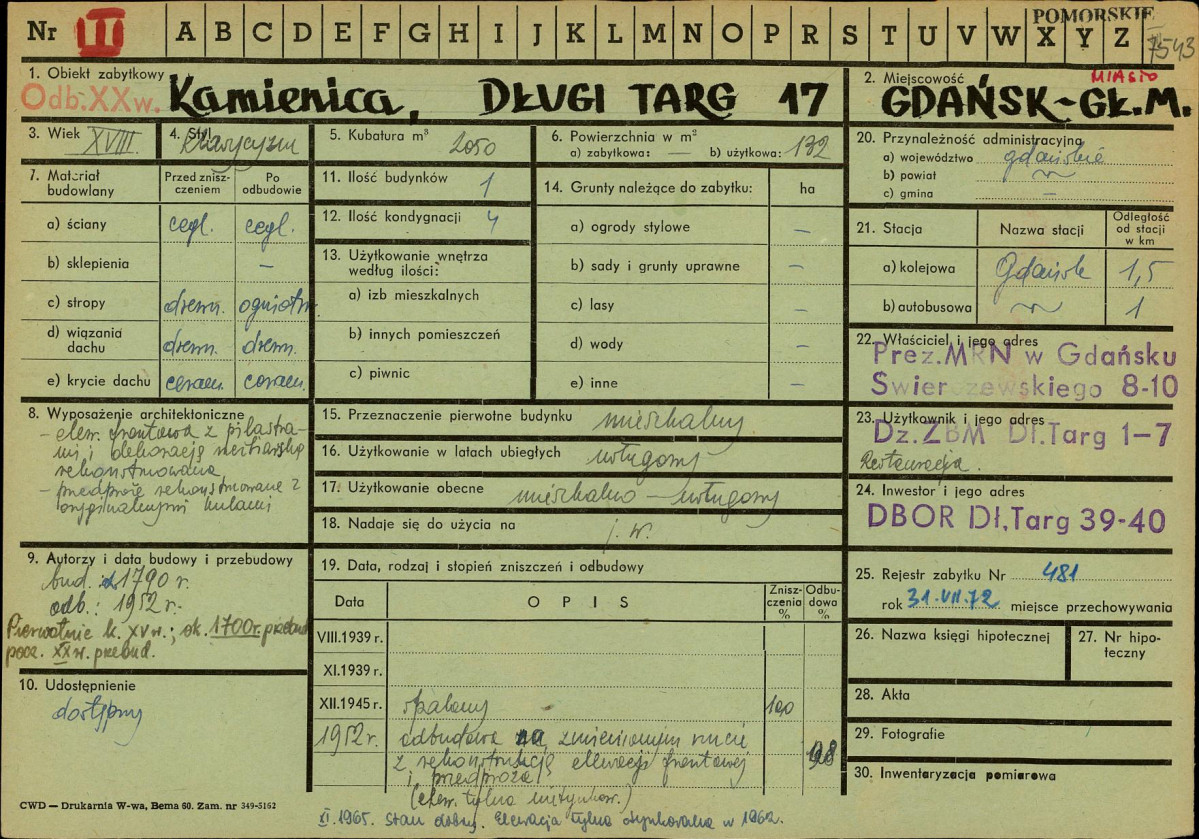 POMORSKIE
Nr III A B C D E F G H I J K L M N O P R S T U V W X Y Z
7543
1. Obiekt zabytkowy
Odb. XX w. Kamienica, DŁUGI TARG 17
2. Miejscowość MIASTO
GDAŃSK-GŁ.M.
3. Wiek XVIII
4. Styl klasycyzm
5. Kubatura m³ 2050
6. Powierzchnia w m²
a) zabytkowa: — b) użytkowa: 132
7. Materiał budowlany
Przed zniszczeniem
Po odbudowie
a) ściany cegl. cegl.
b) sklepienia —
c) stropy drewn. ogniotrw.
d) wiązania dachu drewn. drewn.
e) krycie dachu ceram. ceram.
8. Wyposażenie architektoniczne
- elew. frontowa z pilastra-
mi i dekoracją
rekonstruowana
- przedproże rekonstruowane z
oryginalnymi kulami
9. Autorzy i data budowy i przebudowy
bud. 1790 r.
odb.: 1952 r.
Pierwotnie k. XV w.; ok. 1700r. przebud.
pocz. XX w. przebud.
10. Udostępnienie
dostępny
11. Ilość budynków 1
12. Ilość kondygnacji 4
13. Użytkowanie wnętrza według ilości:
a) izb mieszkalnych
b) innych pomieszczeń
c) piwnic
14. Grunty należące do zabytku: ha
a) ogrody stylowe —
b) sady i grunty uprawne —
c) lasy —
d) wody —
e) inne —
15. Przeznaczenie pierwotne budynku mieszkalny
16. Użytkowanie w latach ubiegłych usługowy
17. Użytkowanie obecne mieszkalno - usługowy
18. Nadaje się do użycia na j. w.
19. Data, rodzaj i stopień zniszczeń i odbudowy
Data OPIS Zniszczenia % Odbudowa %
VIII.1939 r.
XI.1939 r.
XII.1945 r. spalony 100
1952 r. odbudowa na zmienionym rzucie
z rekonstrukcją elewacji frontowej
i przedproża
(elew. tylna nietynkow.)
XI.1965. Stan dobry. Elewacja tylna otynkowana w 1962.
20. Przynależność administracyjna
a) województwo gdańskie
b) powiat
c) gmina —
21. Stacja Nazwa stacji Odległość od stacji w km
a) kolejowa Gdańsk 1,5
b) autobusowa 1
22. Właściciel i jego adres
Prez.MRN w Gdańsku
Świerczewskiego 8-10
23. Użytkownik i jego adres
Dz.ZBM Dł.Targ 1-7
Restauracja.
24. Inwestor i jego adres
DBOR Dł.Targ 39-40
25. Rejestr zabytku Nr 481
rok 31.VII.72 miejsce przechowywania
26. Nazwa księgi hipotecznej
27. Nr hipoteczny
28. Akta
29. Fotografie
30. Inwentaryzacja pomiarowa
CWD — Drukarnia W-wa, Bema 60. Zam. nr 349-5162